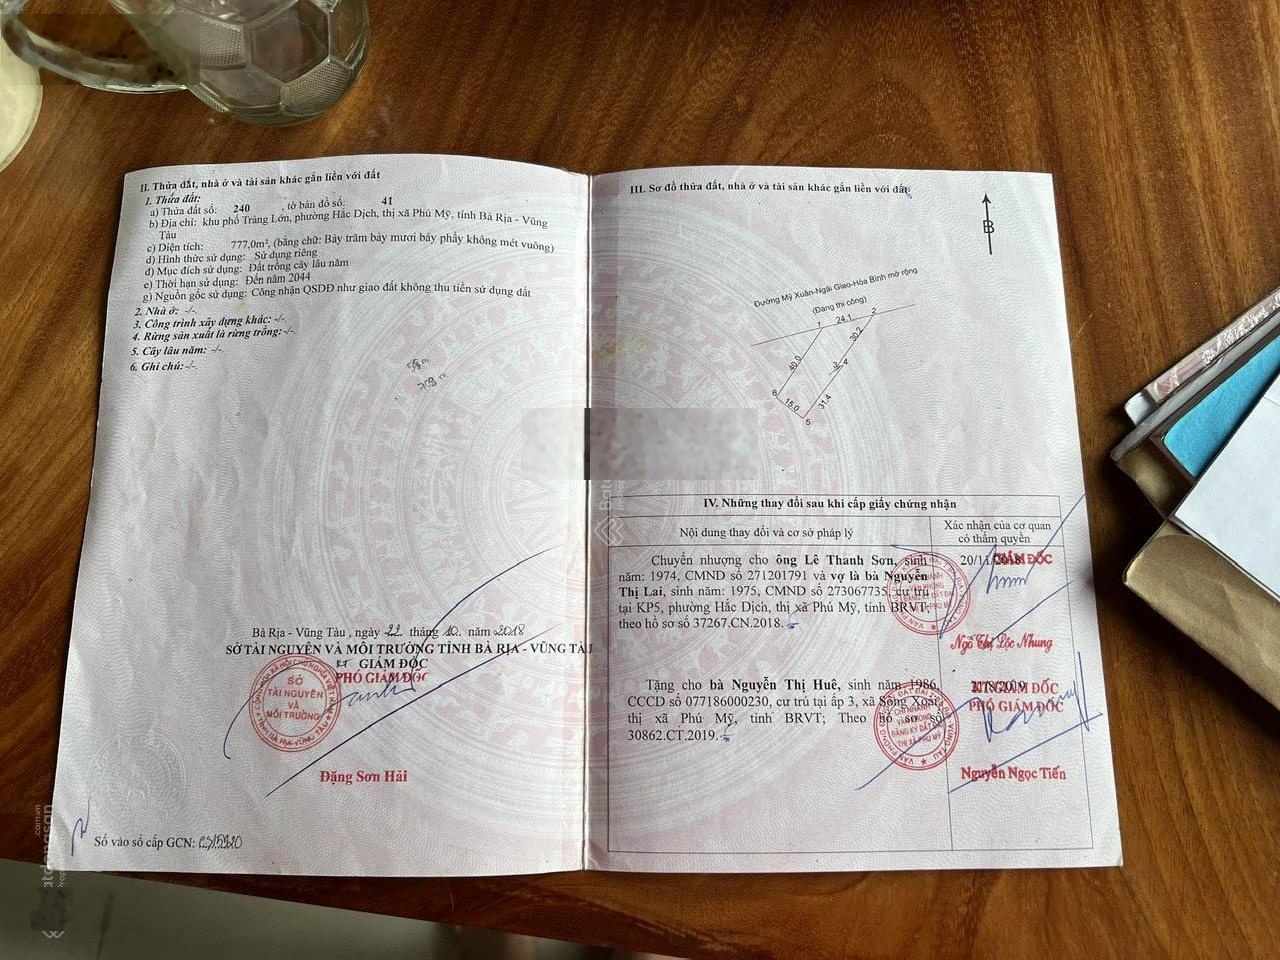 II. Thửa đất, nhà ở và tài sản khác gắn liền với đất
1. Thửa đất:
a) Thửa đất số: 240 , tờ bản đồ số: 41
b) Địa chỉ: khu phố Trảng Lớn, phường Hắc Dịch, thị xã Phú Mỹ, tỉnh Bà Rịa - Vũng
Tàu
c) Diện tích: 777,0m², (bằng chữ: Bảy trăm bảy mươi bảy phẩy không mét vuông)
d) Hình thức sử dụng: Sử dụng riêng
đ) Mục đích sử dụng: Đất trồng cây lâu năm
e) Thời hạn sử dụng: Đến năm 2044
g) Nguồn gốc sử dụng: Công nhận QSDĐ như giao đất không thu tiền sử dụng đất
2. Nhà ở: -/-
3. Công trình xây dựng khác: -/-
4. Rừng sản xuất là rừng trồng: -/-
5. Cây lâu năm: -/-
6. Ghi chú: -/-
Bà Rịa - Vũng Tàu , ngày 22 tháng 10 năm 2018
SỞ TÀI NGUYÊN VÀ MÔI TRƯỜNG TỈNH BÀ RỊA - VŨNG TÀU
KT GIÁM ĐỐC
PHÓ GIÁM ĐỐC
SỞ
TÀI NGUYÊN
VÀ
MÔI TRƯỜNG
Đặng Sơn Hải
Số vào sổ cấp GCN:
III. Sơ đồ thửa đất, nhà ở và tài sản khác gắn liền với đất
B
Đường Mỹ Xuân-Ngãi Giao-Hòa Bình mở rộng
(Đang thi công)
1 24.1 2
30.2
40.0
3 4
6
15.0
31.4
5
IV. Những thay đổi sau khi cấp giấy chứng nhận
Nội dung thay đổi và cơ sở pháp lý
Xác nhận của cơ quan
có thẩm quyền
Chuyển nhượng cho ông Lê Thanh Sơn, sinh
năm: 1974, CMND số 271201791 và vợ là bà Nguyễn
Thị Lai, sinh năm: 1975, CMND số 273067735, cư trú
tại KP5, phường Hắc Dịch, thị xã Phú Mỹ, tỉnh BRVT;
theo hồ sơ số 37267.CN.2018.
20/11/2018
GIÁM ĐỐC
Ngô Thị Lộc Nhung
Tặng cho bà Nguyễn Thị Huê, sinh năm 1986,
CCCD số 077186000230, cư trú tại ấp 3, xã Sông Xoài,
thị xã Phú Mỹ, tỉnh BRVT; Theo hồ sơ số
30862.CT.2019.
KT.GIÁM ĐỐC
PHÓ GIÁM ĐỐC
Nguyễn Ngọc Tiến